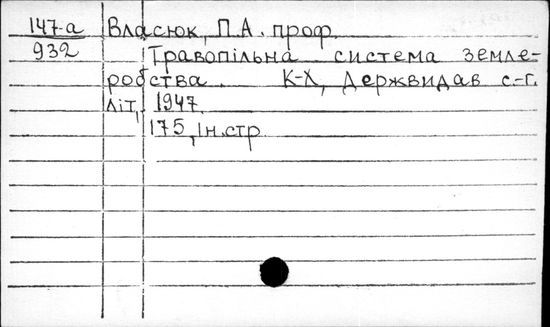 147-а Власюк, П.А. проф.
932 Травопільна система земле-
робства. К-Х, Держвидав с.-г.
літ, 1947.
175, Ін.стр